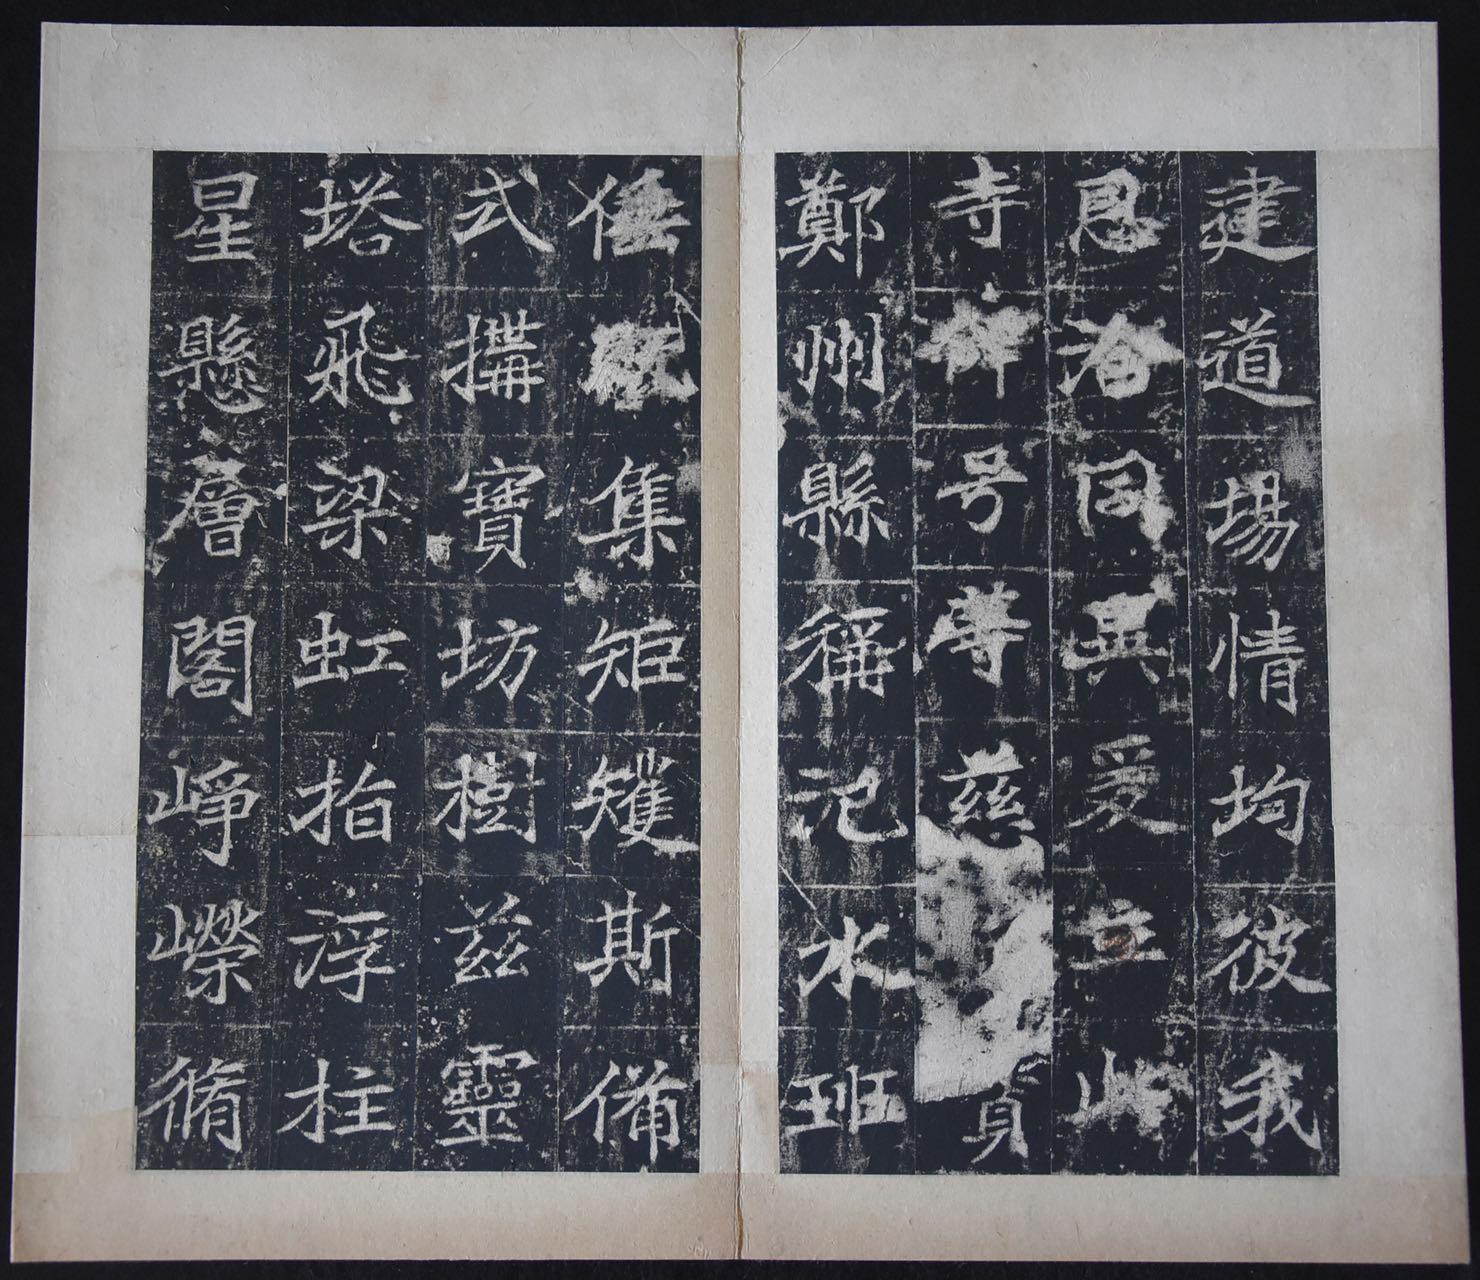 建道場情均彼我
恩洽同異爰立此
寺碎号等慈 貞
鄭州縣稱汜水班
倕 集矩矱斯備
式搆寶坊樹茲靈
塔飛梁虹指浮柱
星懸層閣崢嶸脩